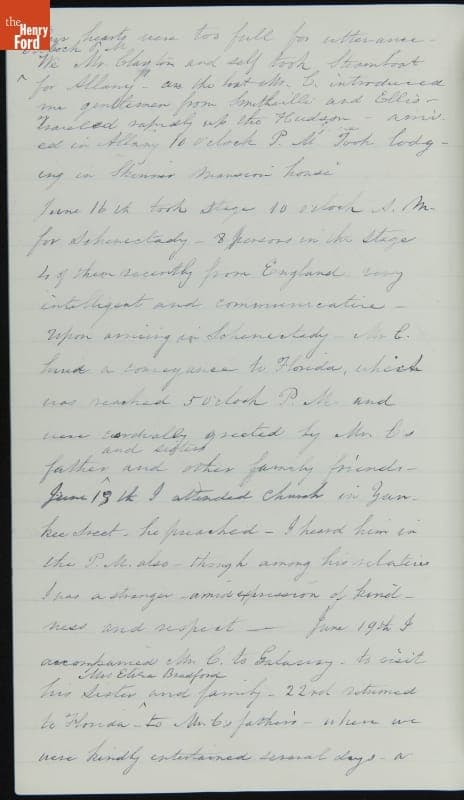 the
Henry
Ford
our hearts were too full for utterance -
o'clock P. M.
We Mr. Clayton and self took Steamboat
for Albany - on the boat Mr. C. introduced
me gentlemen from Smithville and Ellis -
Traveled rapidly up the Hudson - arriv
ed in Albany 10 o'clock P. M. Took lodg -
ing in Skinner Mansion house
June 16th took stage 10 o'clock A. M.
for Schenectady - 8 persons in the stage
4 of them recently from England very
intelligent and communicative -
Upon arriving in Schenectady - Mr C.
hired a conveyance to Florida, which
was reached 5 o'clock P. M. and
were cordially greeted by Mr. Cs
and sisters
father and other family friends -
June 13th I attended Church in Yan -
kee Street - he preached - I heard him in
the P. M. also - though among his relatives
I was a stranger - amid expression of kind -
ness and respect — June 19th I
accompanied Mr. C. to Galaway - to visit
Mrs Eliza Bradford
his Sister and family - 22nd returned
to Florida - to Mr. Cs father's - where we
were kindly entertained several days - a